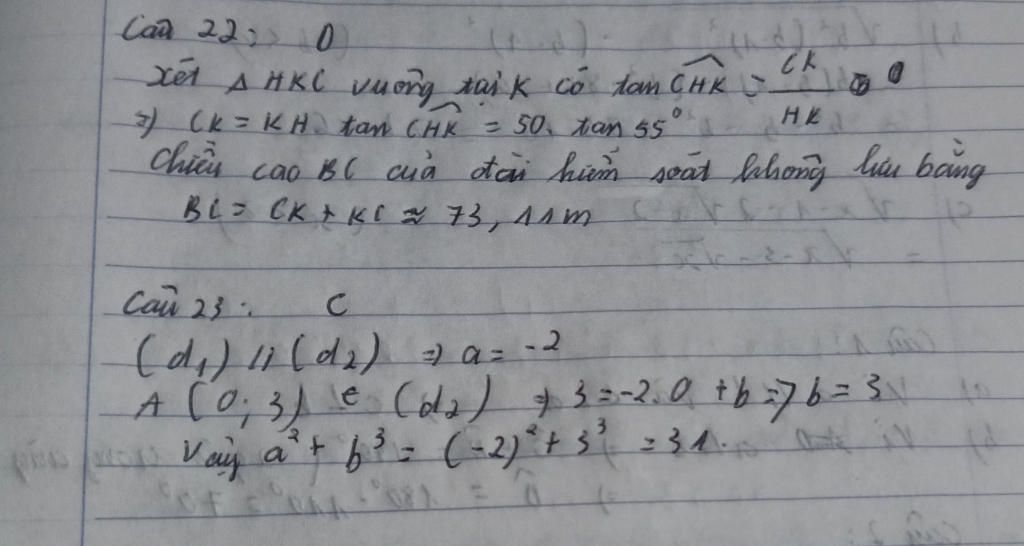 Câu 22: D
Xét Δ HKC vuông tại K có tan CHK = CK/HK
⇒ CK = KH. tan CHK = 50. tan 55°
Chiều cao BC của đài kiểm soát không lưu bằng
BC = CK + KC ≈ 73,11m
Câu 23: C
(d₁) // (d₂) ⇒ a = -2
A (0; 3) ∈ (d₂) ⇒ 3 = -2.0 + b => b = 3
Vậy a² + b³ = (-2)² + 3³ = 31.